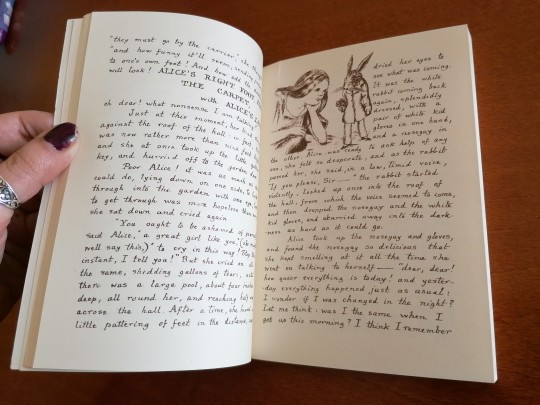 "they must go by the carrier," she
"and how funny it'll seem, sending
to one's own feet! And how odd
will look! ALICE'S RIGHT FOOT
THE CARPET
with ALICE'S
oh dear! what nonsense I am talking
Just at this moment, her head
against the roof of the hall: in fact
was now rather more than nine feet
and she at once took up the little
key, and hurried off to the garden
Poor Alice! it was as much
could do, lying down on one side, to
through into the garden with one
to get through was more hopeless than
she sat down and cried again
"You ought to be ashamed of
said Alice, "a great girl like you,
well say this,) "to cry in this way!
instant, I tell you!" But she cried on
the same, shedding gallons of tears,
there was a large pool, about four inches
deep, all round her, and reaching half
across the hall. After a time, she heard
little pattering of feet in the distance,
dried her eyes to
see what was coming.
It was the white
rabbit coming back
again, splendidly
dressed, with a
pair of white kid
gloves in one hand,
and a nosegay in
the other. Alice was ready to ask help of any
one, she felt so desperate, and as the rabbit
passed her, she said, in a low, timid voice,
"If you please, Sir—" the rabbit started
violently, looked up once into the roof of
the hall, from which the voice seemed to come,
and then dropped the nosegay and the white
kid gloves, and skurried away into the dark-
ness as hard as it could go.
Alice took up the nosegay and gloves,
and found the nosegay so delicious that
she kept smelling at it all the time she
went on talking to herself— "dear, dear!
how queer everything is today! and yester-
day everything happened just as usual:
I wonder if I was changed in the night?
Let me think: was I the same when I
got up this morning? I think I remember